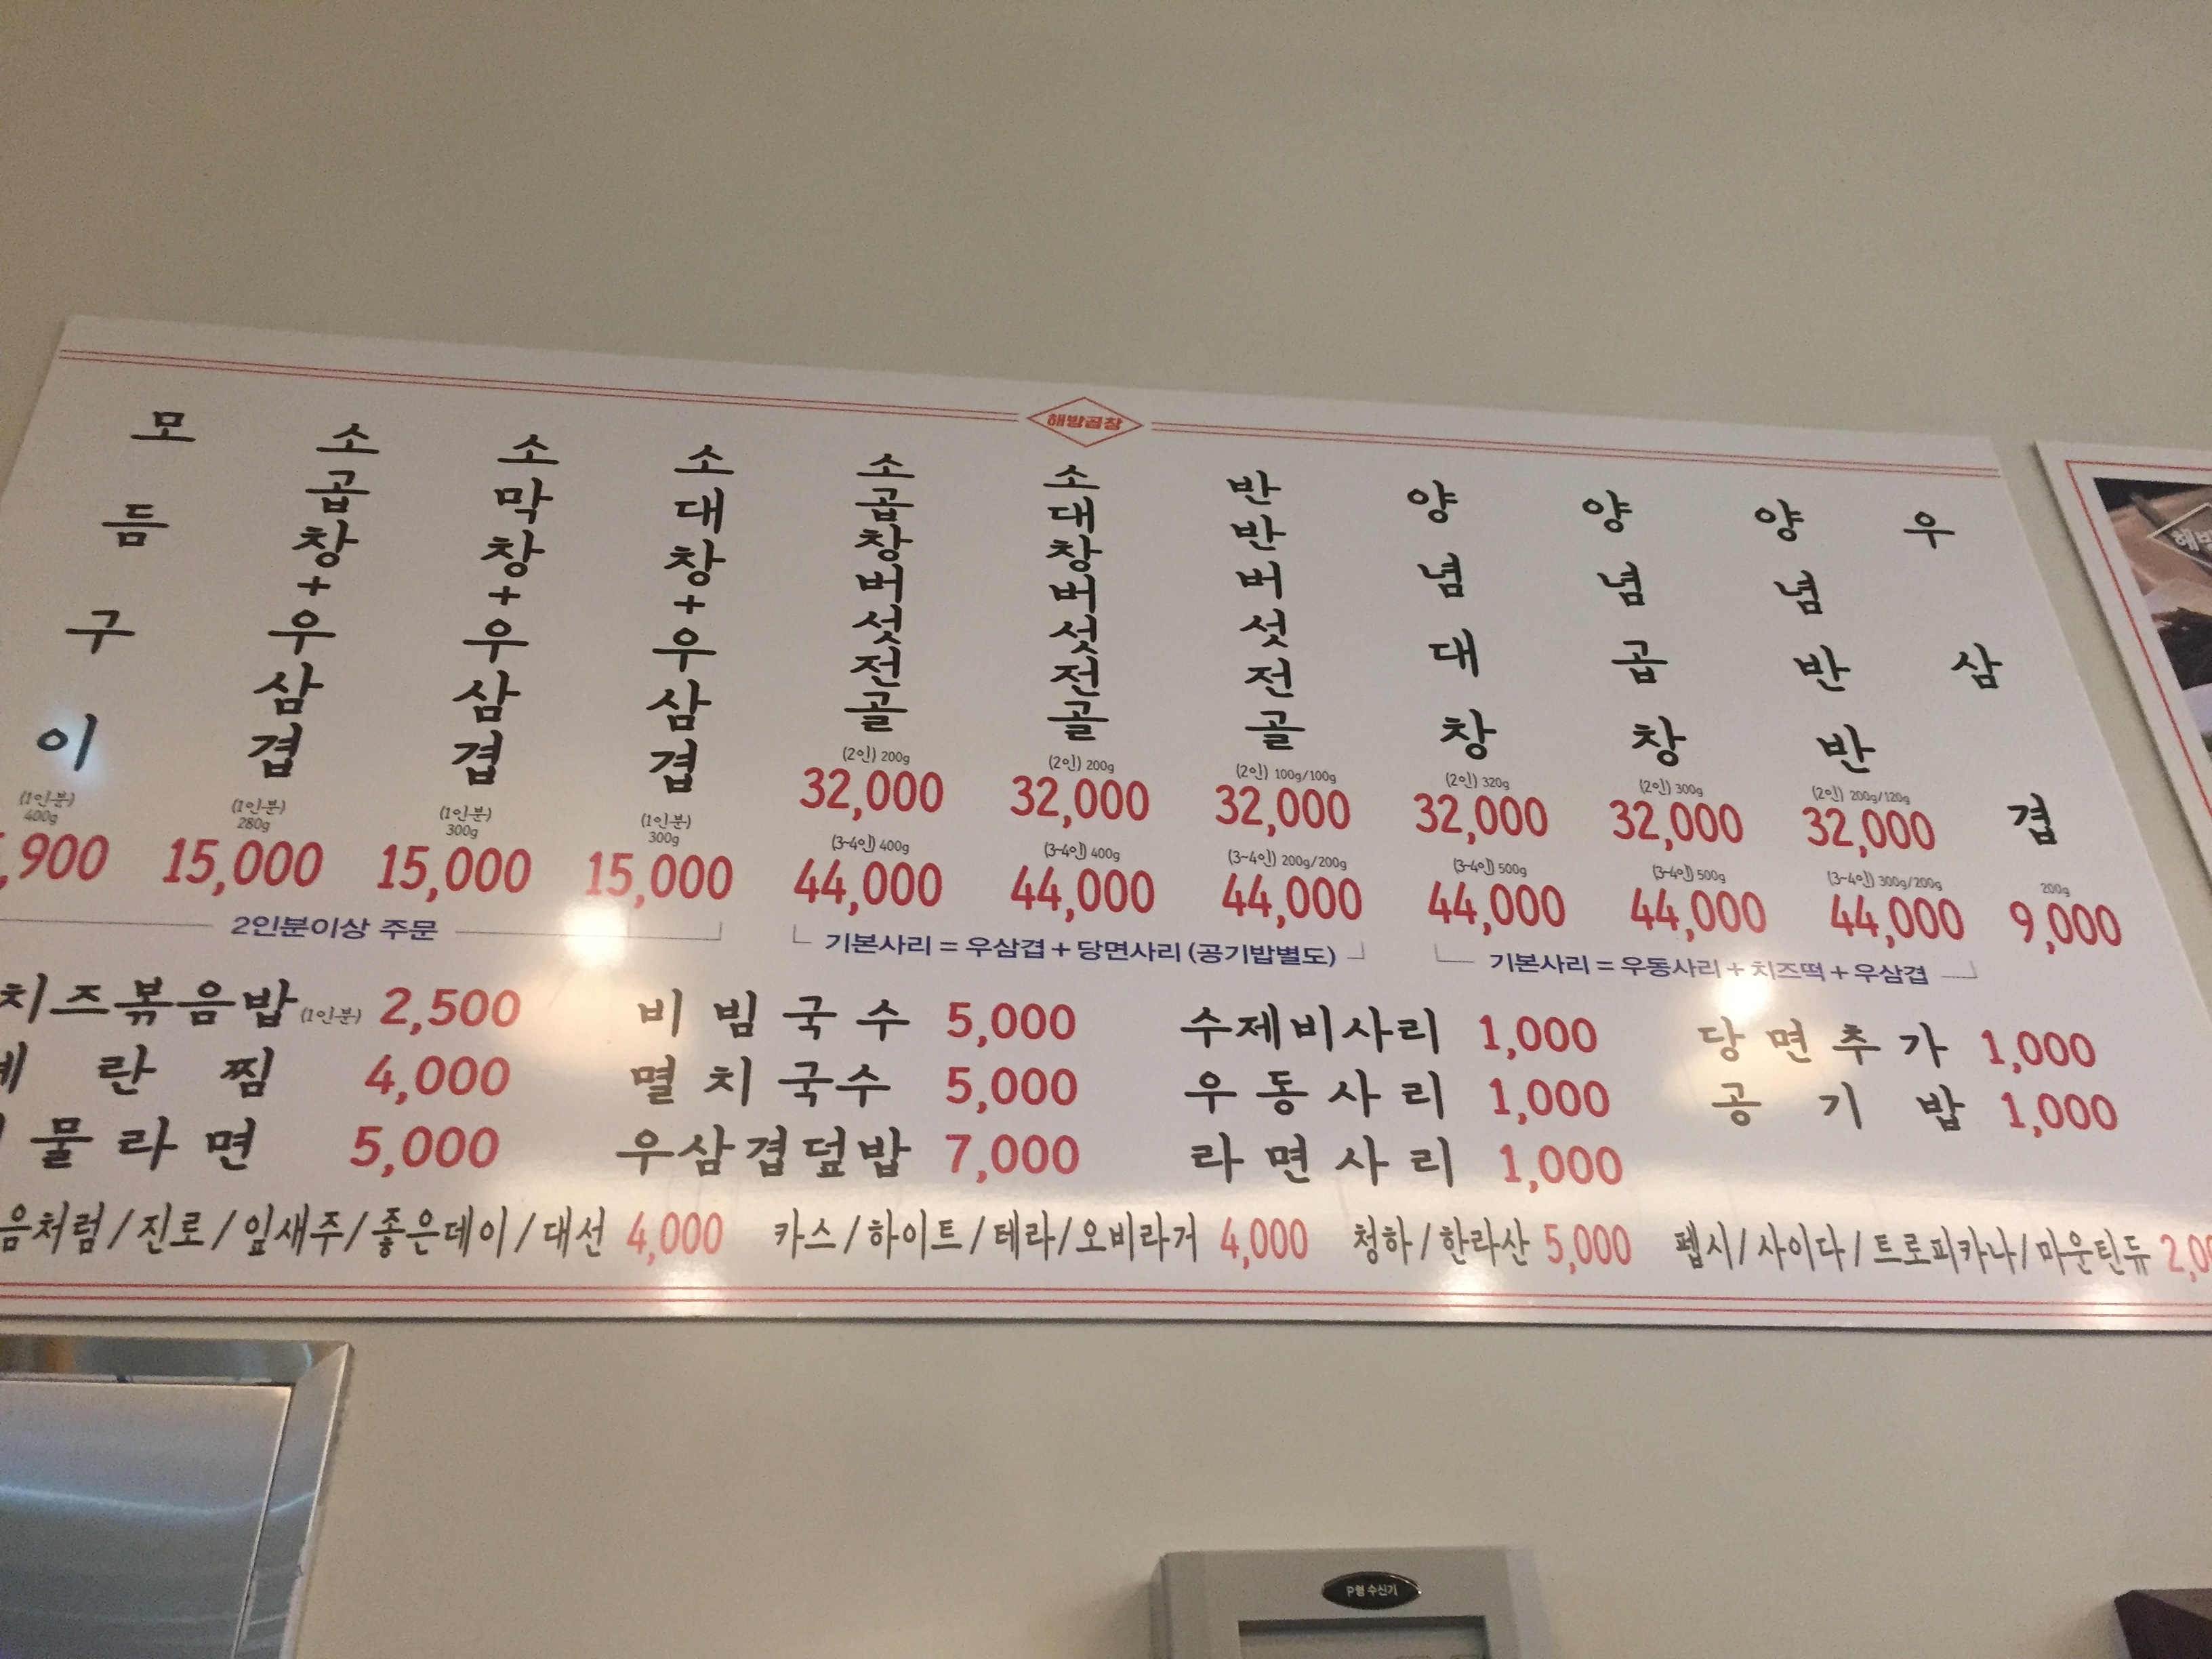 해방곱창
모듬구이
(1인분)
400g
,900
소곱창+우삼겹
(1인분)
280g
15,000
소막창+우삼겹
(1인분)
300g
15,000
소대창+우삼겹
(1인분)
300g
15,000
2인분이상 주문
소곱창버섯전골
(2인) 200g
32,000
(3~4인) 400g
44,000
소대창버섯전골
(2인) 200g
32,000
(3~4인) 400g
44,000
반반버섯전골
(2인) 100g/100g
32,000
(3~4인) 200g/200g
44,000
기본사리 = 우삼겹 + 당면사리 (공기밥별도)
양념대창
(2인) 320g
32,000
(3~4인) 500g
44,000
양념곱창
(2인) 300g
32,000
(3~4인) 500g
44,000
양념반반
(2인) 200g/120g
32,000
(3~4인) 300g/200g
44,000
기본사리 = 우동사리 + 치즈떡 + 우삼겹
우삼겹
200g
9,000
치즈볶음밥 (1인분) 2,500
계란찜 4,000
물라면 5,000
비빔국수 5,000
멸치국수 5,000
우삼겹덮밥 7,000
수제비사리 1,000
우동사리 1,000
라면사리 1,000
당면추가 1,000
공기밥 1,000
음처럼/진로/잎새주/좋은데이/대선 4,000 카스/하이트/테라/오비라거 4,000 청하/한라산 5,000 펩시/사이다/트로피카나/마운틴듀 2,00
P형 수신기